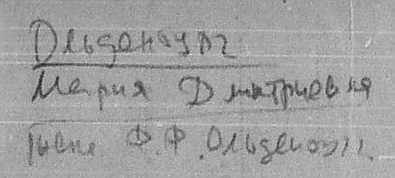 Ольденбург
Мария Дмитриевна
Ф.Ф. Ольденбург.